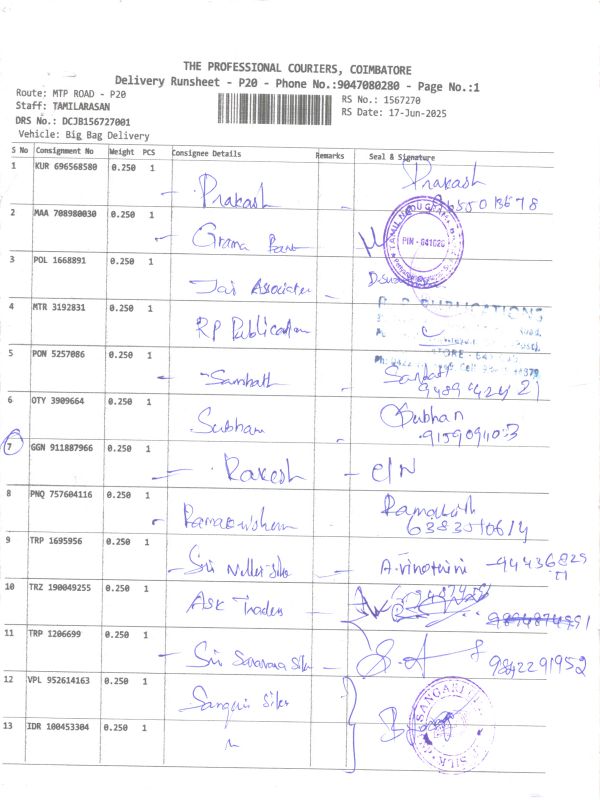 THE PROFESSIONAL COURIERS, COIMBATORE
Delivery Runsheet - P20 - Phone No.:9047080280 - Page No.:1
Route: MTP ROAD - P20
Staff: TAMILARASAN
DRS No.: DCJB156727001
Vehicle: Big Bag Delivery
RS No.: 1567270
RS Date: 17-Jun-2025
S No Consignment No Weight PCS Consignee Details Remarks Seal & Signature
1 KUR 696568580 0.250 1 Prakash Prakash
2 MAA 708980030 0.250 1 Grama
TAMIL NADU GRAMA
PIN - 641020
3 POL 1668891 0.250 1 Jai Associates
4 MTR 3192831 0.250 1 RP Publication
PUBLICATIONS
5 PON 5257086 0.250 1 Sambath
6 OTY 3909664 0.250 1 Subhan Subhan
7 GGN 911887966 0.250 1 Rakesh C/N
8 PNQ 757604116 0.250 1
9 TRP 1695956 0.250 1 Sri A. Vinothini
10 TRZ 190049255 0.250 1 Ask Traders 9894874991
11 TRP 1206699 0.250 1 Sri Saravana Silks S.A 9842291952
12 VPL 952614163 0.250 1
13 IDR 100453304 0.250 1 "